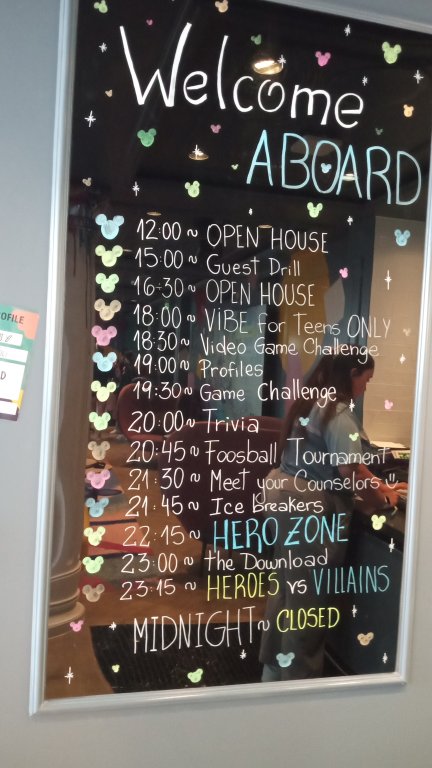 Welcome
ABOARD
12:00 ~ OPEN HOUSE
15:00 ~ Guest Drill
16:30 ~ OPEN HOUSE
18:00 ~ VIBE for Teens ONLY
18:30 ~ Video Game Challenge
19:00 ~ Profiles
19:30 ~ Game Challenge
20:00 ~ Trivia
20:45 ~ Foosball Tournament
21:30 ~ Meet your Counselors
21:45 ~ Ice Breakers
22:15 ~ HERO ZONE
23:00 ~ the Download
23:15 ~ HEROES vs VILLAINS
MIDNIGHT ~ CLOSED